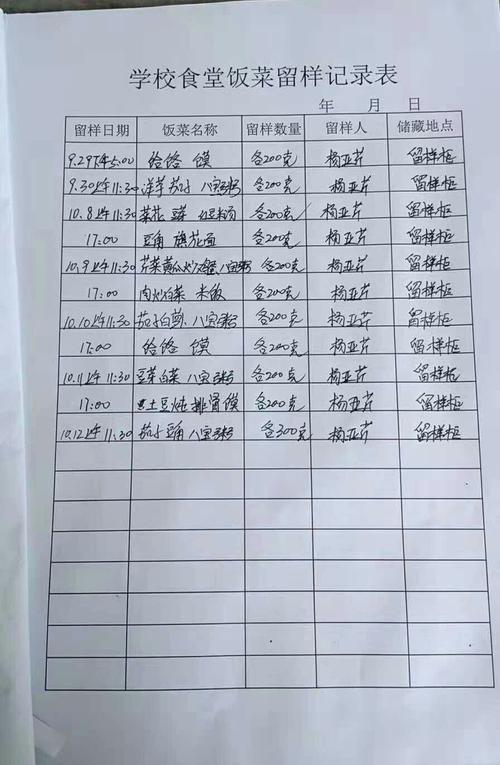 学校食堂饭菜留样记录表
年 月 日
留样日期 饭菜名称 留样数量 留样人 储藏地点
9.29下午5:00 烩馍 各200克 杨亚芹 留样柜
9.30上午11:30 洋芋 茄子 八宝粥 各200克 杨亚芹 留样柜
10.8上午11:30 菜花 豆芽 各200克 杨亚芹 留样柜
17:00 豆角 旗花面 各200克 杨亚芹 留样柜
10.9上午11:30 芹菜 黄瓜 八宝粥 各200克 杨亚芹 留样柜
17:00 肉炒 菜 米饭 各200克 杨亚芹 留样柜
10.10上午11:30 茄子 八宝粥 各200克 杨亚芹 留样柜
17:00 烩馍 各200克 杨亚芹 留样柜
10.11上午11:30 豆芽 白菜 八宝粥 各200克 杨亚芹 留样柜
17:00 土豆炖排骨 馍 各200克 杨亚芹 留样柜
10.12上午11:30 茄子 豆角 八宝粥 各300克 杨亚芹 留样柜